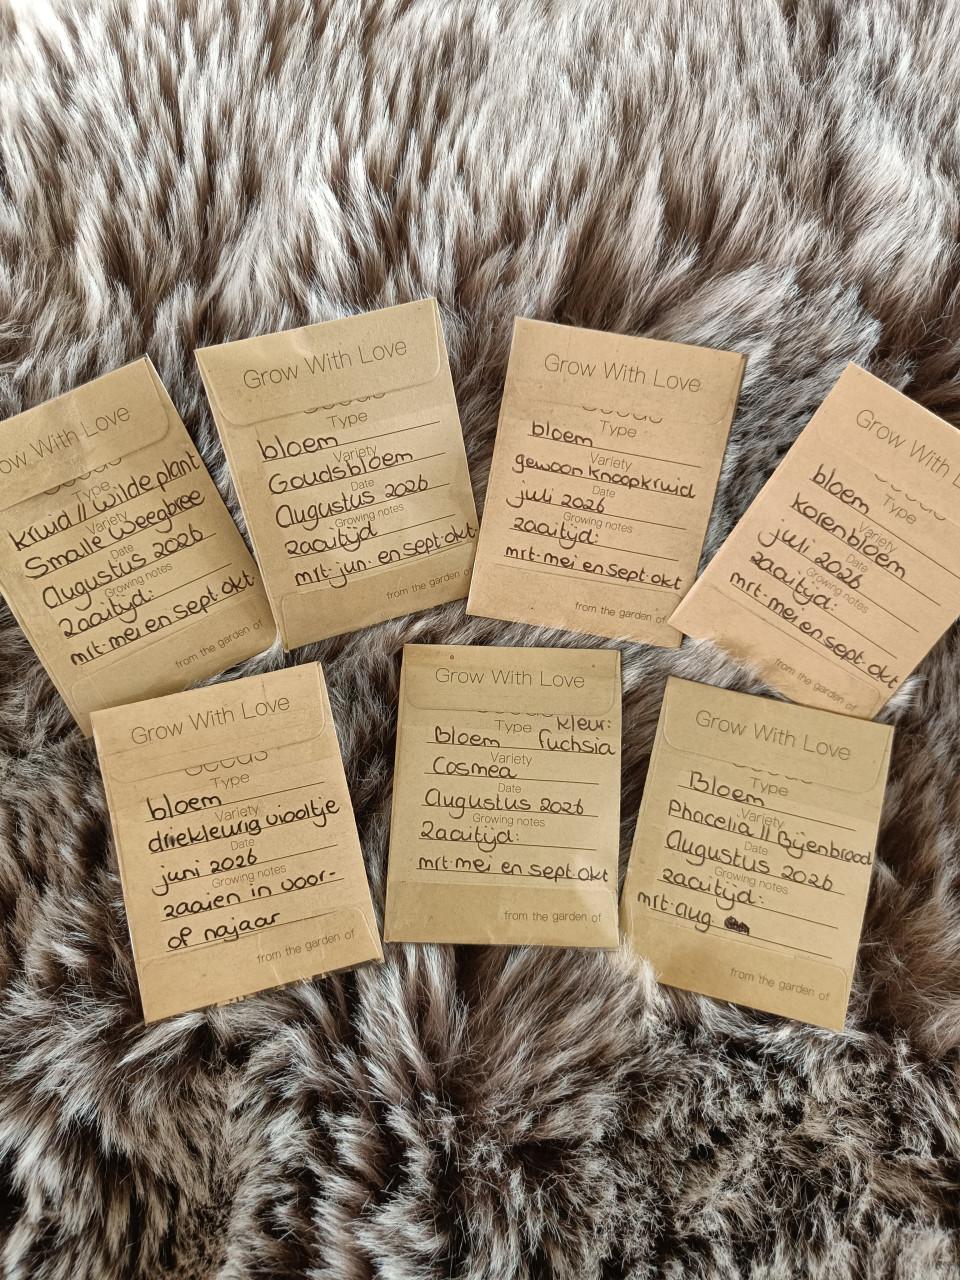 ow With Love
Type
kruid // wilde plant
Variety
Smalle weegbree
Date
Augustus 2026
Growing notes
zaaitijd:
mrt-mei en sept-okt
from the garden of
Grow With Love
Type
bloem
Variety
Goudsbloem
Date
Augustus 2026
Growing notes
zaaitijd
mrt-jun- en sept-okt
from the garden of
Grow With Love
Type
bloem
Variety
gewoon knoopkruid
Date
juli 2026
Growing notes
zaaitijd:
mrt-mei en sept-okt
from the garden of
Grow With L
Type
bloem
Variety
korenbloem
Date
juli 2026
Growing notes
zaaitijd:
mrt-mei en sept-okt
from the garden of
Grow With Love
Seeds
Type
bloem
Variety
driekleurig viooltje
Date
juni 2026
Growing notes
zaaien in voor-
of najaar
from the garden of
Grow With Love
Type kleur:
Bloem fuchsia
Variety
Cosmea
Date
Augustus 2026
Growing notes
zaaitijd:
mrt-mei en sept-okt
from the garden of
Grow With Love
Type
Bloem
Variety
Phacelia // Bijenbrood
Date
Augustus 2026
Growing notes
zaaitijd:
mrt-aug
from the garden of